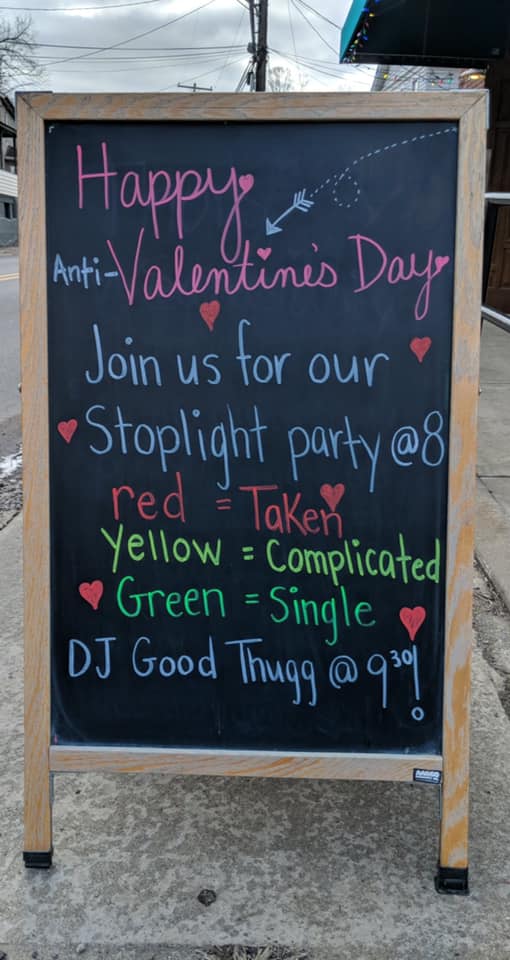 Happy
Anti-Valentine's Day
Join us for our
Stoplight party @8
red = Taken
Yellow = Complicated
Green = Single
DJ Good Thugg @ 9³⁰!